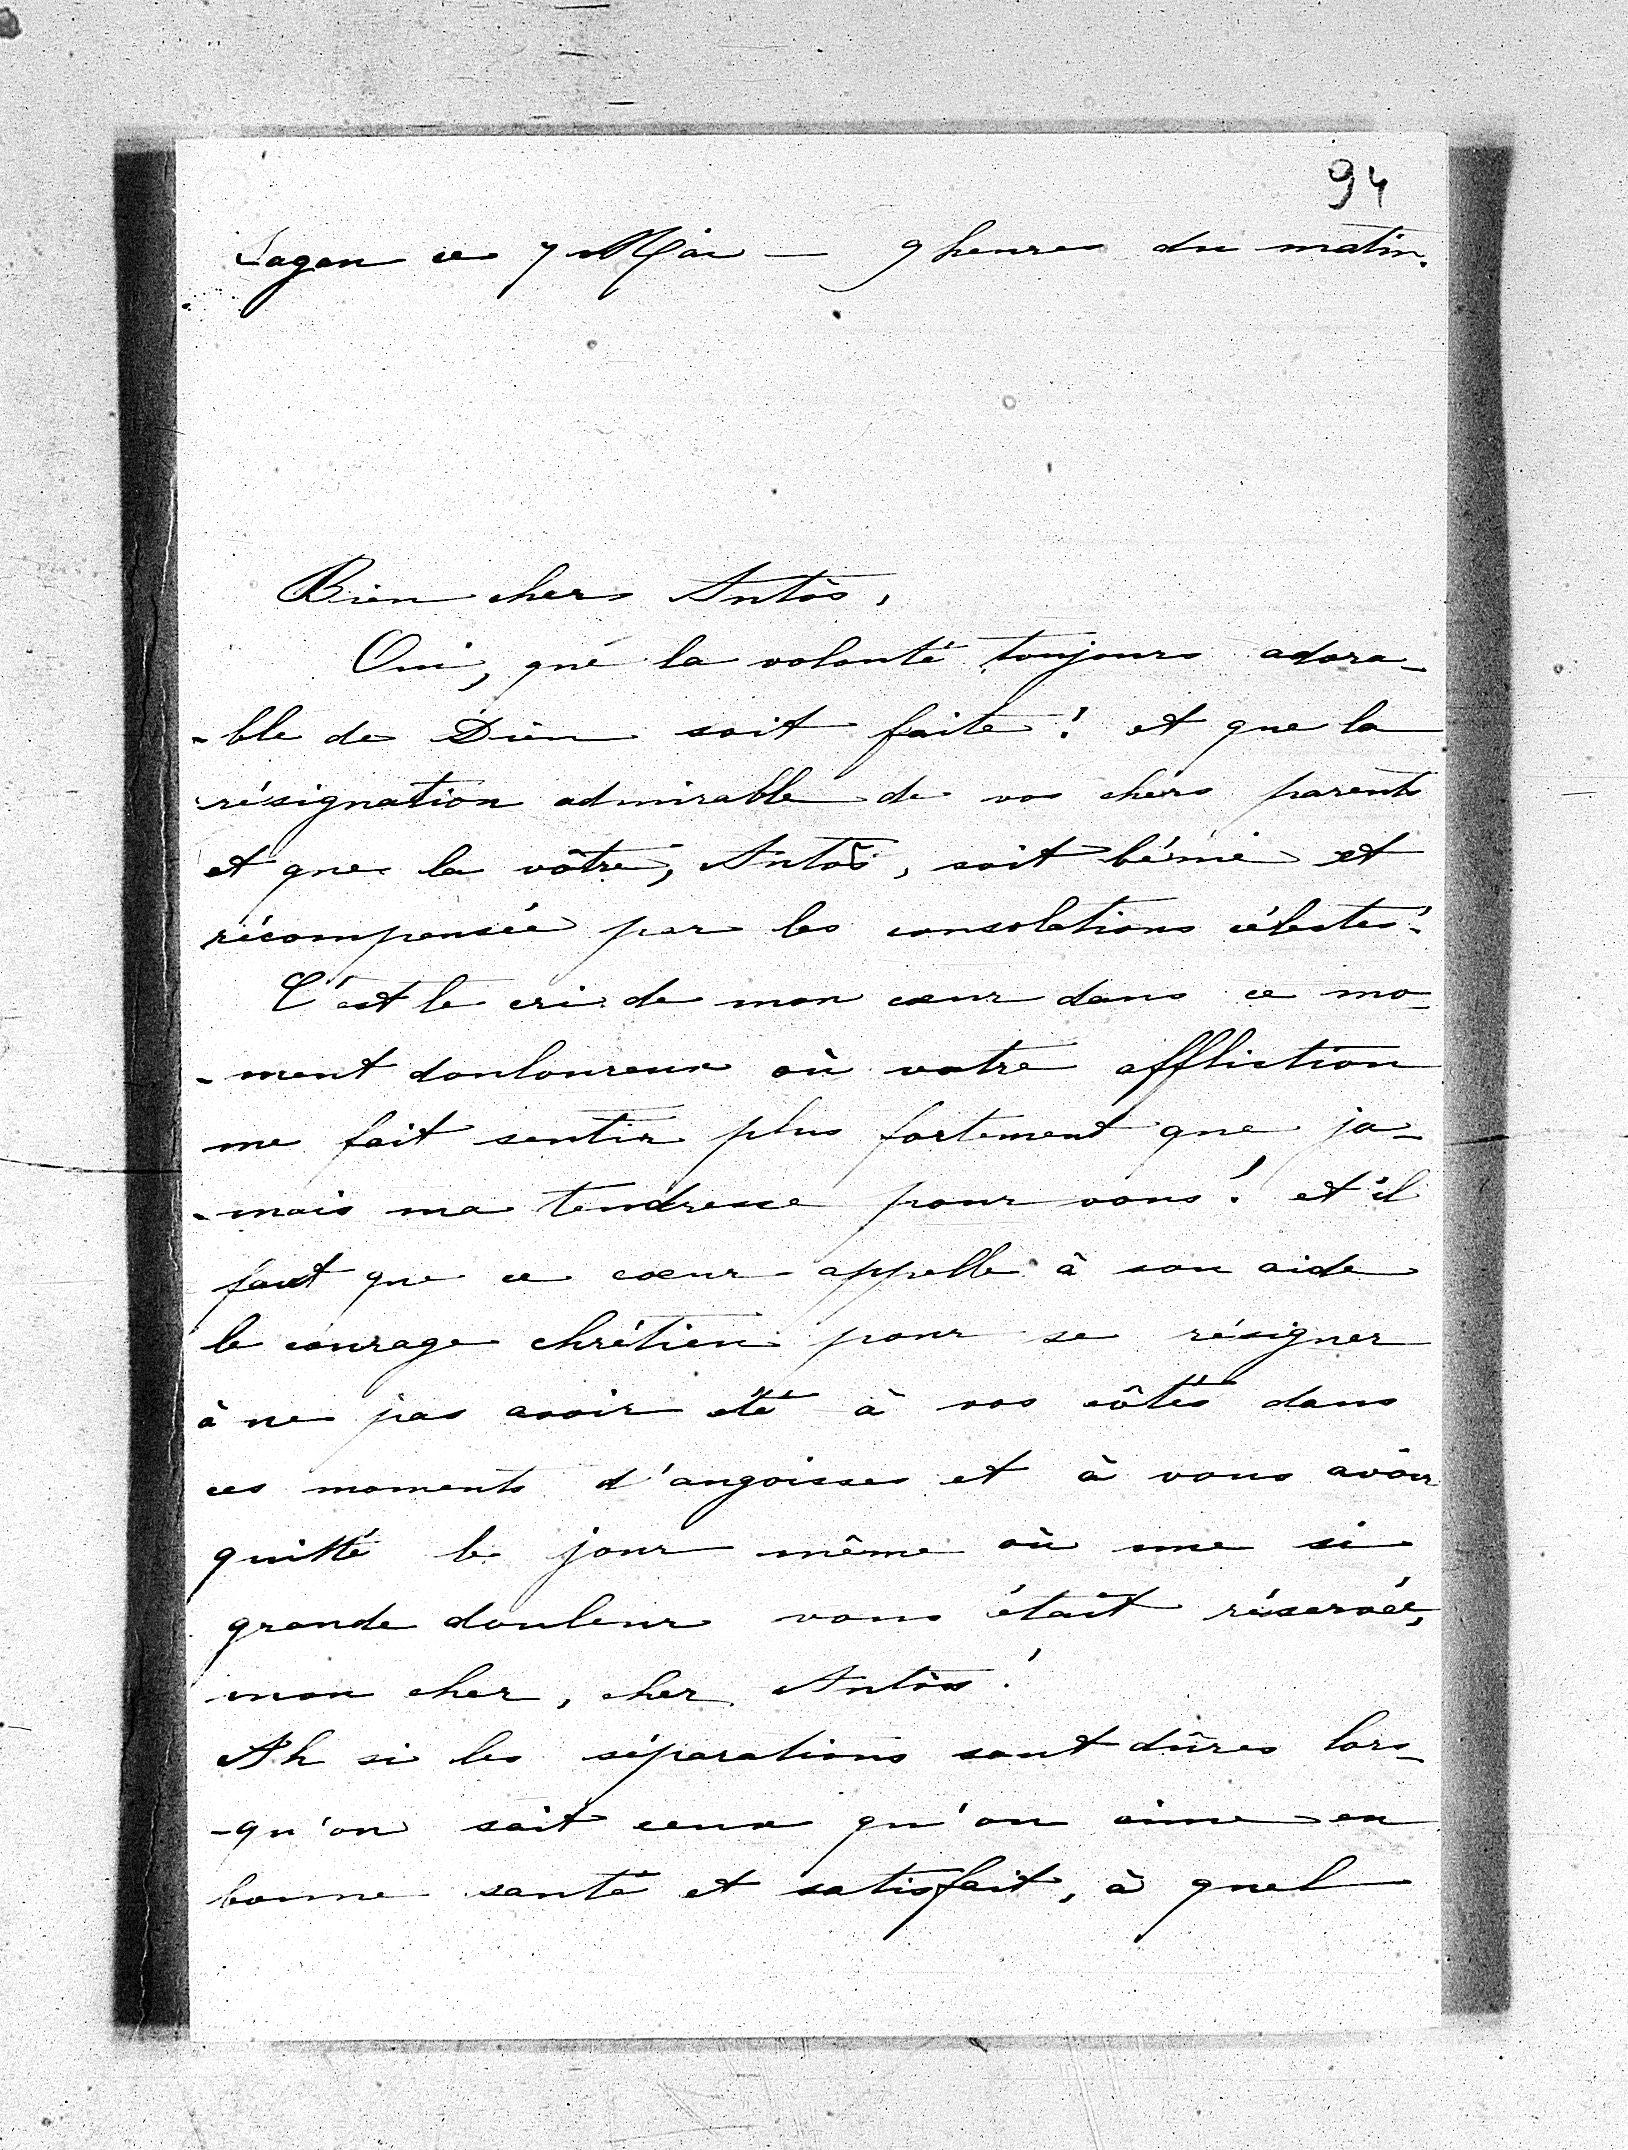 94
Sagan ce 7 Mai — 9 heures du matin.
Bien cher Antós,
Oui, que la volonté toujours adora-
-ble de Dieu soit faite! et que la
résignation admirable de vos chers parents
et que la vôtre, Antós, soit bénie et
récompensée par les consolations célestes!
C'est le cri de mon cœur dans ce mo-
-ment douloureux où votre affliction
me fait sentir plus fortement que ja-
-mais ma tendresse pour vous! et il
faut que ce cœur appelle à son aide
le courage chrétien pour se résigner
à ne pas avoir été à vos côtés dans
ces moments d'angoisses et à vous avoir
quitté le jour même où une si
grande douleur vous était réservée,
mon cher, cher Antós!
Ah si les séparations sont dûres lors-
-qu'on sait ceux qu'on aime en
bonne santé et satisfait, à quel